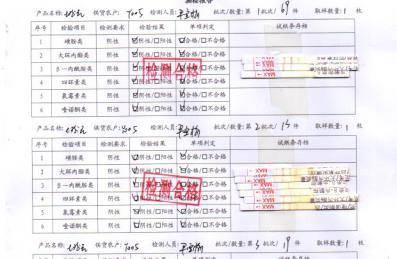 产品名称: 供货农户:7005 检测人员: 批次/数量:第1批次/69件 取样数量:1枚
序号 检验项目 检测要求 检验结果 单项判定 试纸条存档
1 磺胺类 阴性 ☑阴性/□阳性 ☑合格/□不合格
2 大环内酯类 阴性 ☑阴性/□阳性 ☑合格/□不合格
3 β-内酰胺类 阴性 ☑阴性/□阳性 ☑合格/□不合格
4 四环素类 阴性 ☑阴性/□阳性 ☑合格/□不合格
5 氯霉素类 阴性 ☑阴性/□阳性 ☑合格/□不合格
6 喹诺酮类 阴性 ☑阴性/□阳性 ☑合格/□不合格
检测合格
MAX
产品名称: 供货农户:7005 检测人员: 批次/数量:第2批次/15件 取样数量:1枚
序号 检验项目 检测要求 检验结果 单项判定 试纸条存档
1 磺胺类 阴性 ☑阴性/□阳性 ☑合格/□不合格
2 大环内酯类 阴性 ☑阴性/□阳性 ☑合格/□不合格
3 β-内酰胺类 阴性 ☑阴性/□阳性 ☑合格/□不合格
4 四环素类 阴性 ☑阴性/□阳性 ☑合格/□不合格
5 氯霉素类 阴性 ☑阴性/□阳性 ☑合格/□不合格
6 喹诺酮类 阴性 ☑阴性/□阳性 ☑合格/□不合格
检测合格
MAX
产品名称: 供货农户:7005 检测人员: 批次/数量:第3批次/19件 取样数量:1枚